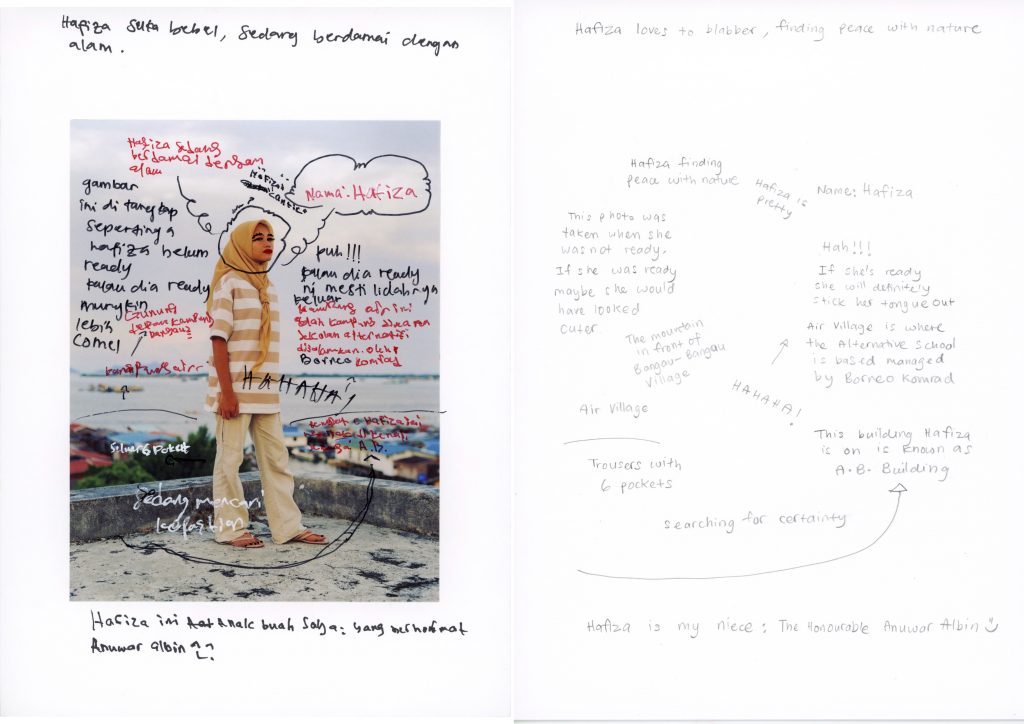 Hafiza suka bebel, sedang berdamai dengan
alam.
Hafiza sedang
berdamai dengan
alam
Hafiza
cantik
Nama: Hafiza
gambar
ini di tangkap
sepertinya
hafiza belum
ready
kalau dia ready
mungkin
lebih
comel
puh!!!
kalau dia ready
ni mesti lidahnya
keluar
kampung air ini
ialah kampung dimana
sekolah alternatif
dijalankan oleh
Borneo Komrad
Gunung
depan kampung
bangau
kampung air
HAHAHA!
tempat Hafiza ini
A.B.
seluar 6 poket
sedang mencari
kepastian
Hafiza ini anak buah saya: yang berhormat
Anuwar albin
Hafiza loves to blabber, finding peace with nature
Hafiza finding
peace with nature
Hafiza is
pretty
Name: Hafiza
This photo was
taken when she
was not ready.
If she was ready
maybe she would
have looked
cuter.
Hah!!!
If she's ready
she will definitely
stick her tongue out
The mountain
in front of
Bangau-Bangau
Village
Air Village is where
the Alternative School
is based managed
by Borneo Komrad
HAHAHA!
Air Village
This building Hafiza
is on is known as
A.B. Building
Trousers with
6 pockets
searching for certainty
Hafiza is my niece: The Honourable Anuwar Albin